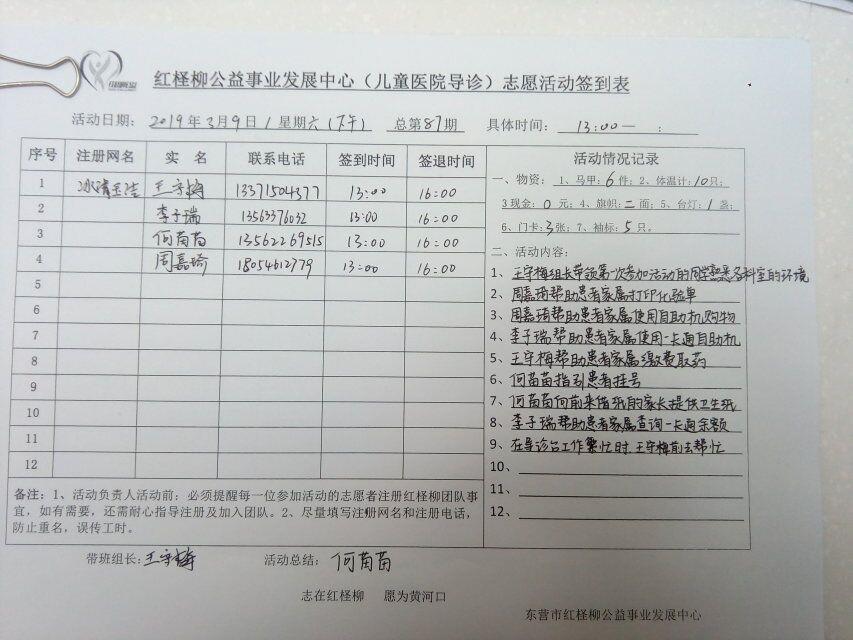 红柽柳公益事业发展中心（儿童医院导诊）志愿活动签到表
活动日期：2019年3月9日/星期六（下午） 总第87期 具体时间：13:00— ：
序号 注册网名 实 名 联系电话 签到时间 签退时间
1 冰清玉洁 王守梅 13371504377 13:00 16:00
2 李子瑞 13563376032 13:00 16:00
3 何苗苗 13562269515 13:00 16:00
4 周嘉琦 18054612779 13:00 16:00
5
6
7
8
9
10
11
12
备注：1、活动负责人活动前：必须提醒每一位参加活动的志愿者注册红柽柳团队事
宜，如有需要，还需耐心指导注册及加入团队。2、尽量填写注册网名和注册电话，
防止重名，误传工时。
活动情况记录
一、物资：1、马甲：6件；2、体温计：10只；
3现金：0元；4、旗帜：二面；5、台灯：1盏；
6、门卡：3张；7、袖标：5只。
二、活动内容：
1、王守梅组长带领第一次参加活动的同学熟悉各科室的环境
2、周嘉琦帮助患者家属打印化验单
3、周嘉琦帮助患者家属使用自助机购物
4、李子瑞帮助患者家属使用一卡通自助机
5、王守梅帮助患者家属缴费取药
6、何苗苗指引患者挂号
7、何苗苗向前来借纸的家长提供卫生纸
8、李子瑞帮助患者家属查询一卡通余额
9、在导诊台工作繁忙时，王守梅前去帮忙
10、
11、
12、
带班组长：王守梅 活动总结：何苗苗
志在红柽柳 愿为黄河口
东营市红柽柳公益事业发展中心